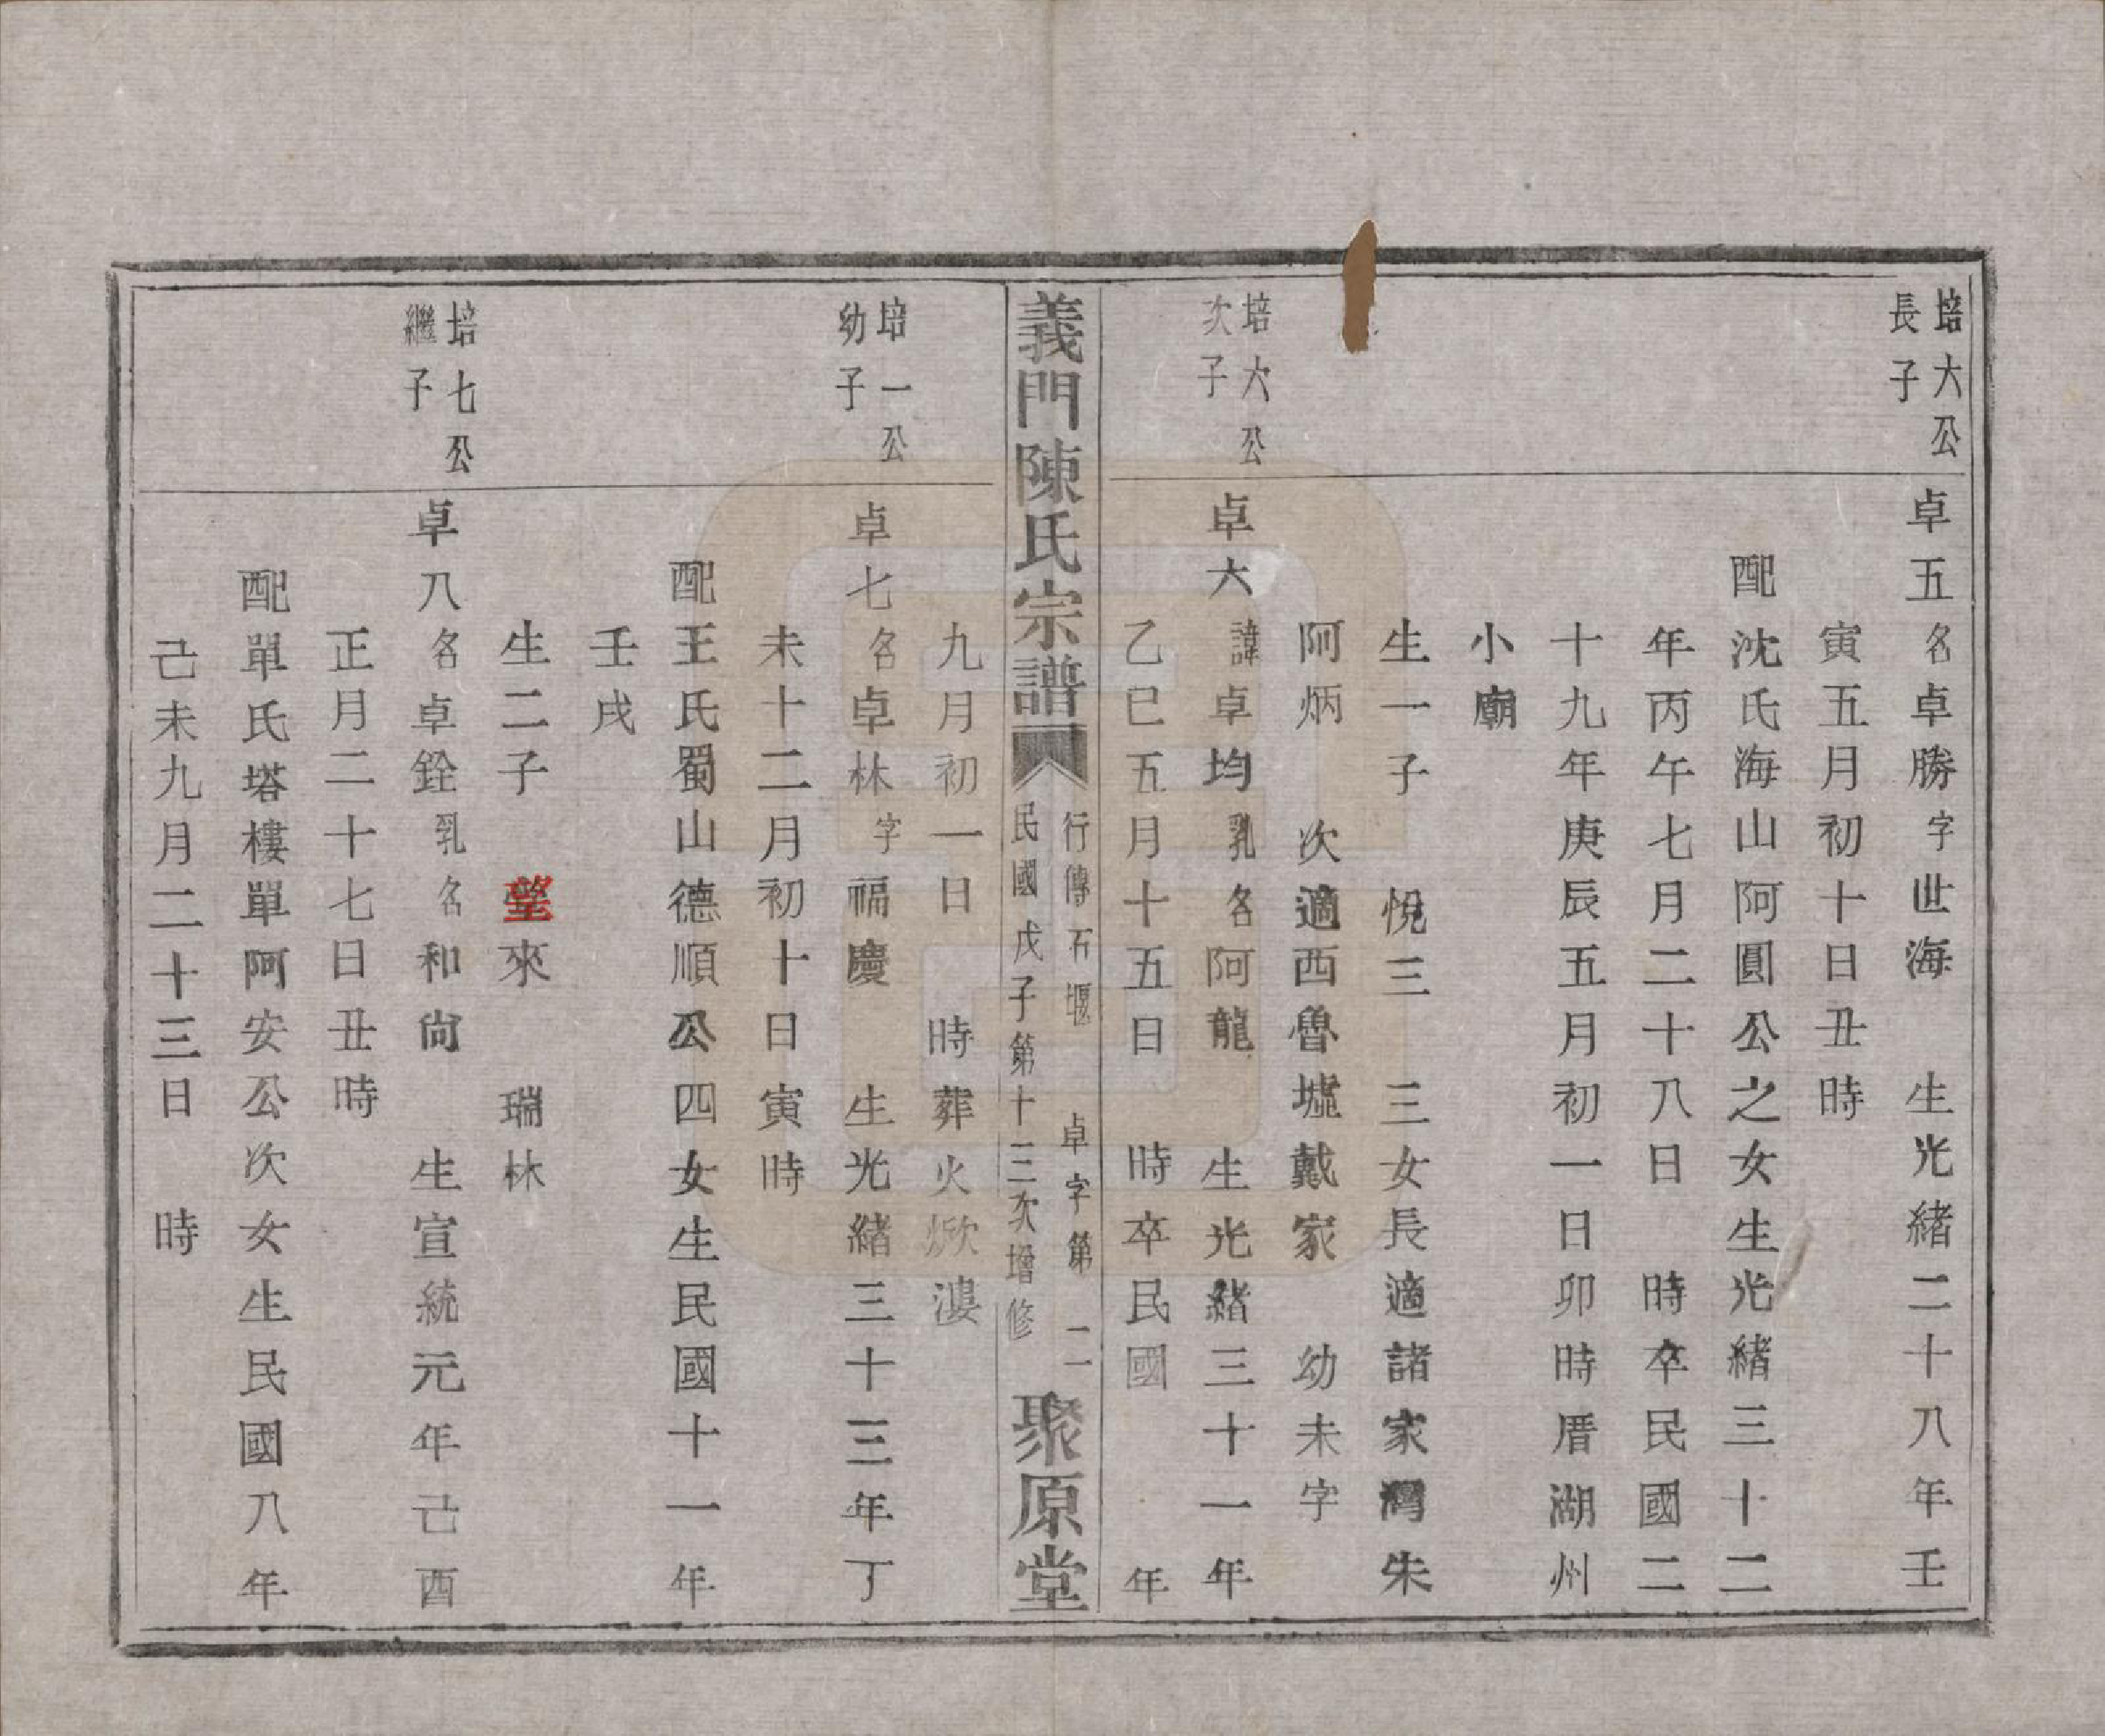 培六公
長子
卓五名卓勝字世海 生光緒二十八年壬
寅五月初十日丑時
配沈氏海山阿圓公之女生光緒三十二
年丙午七月二十八日 時卒民國二
十九年庚辰五月初一日卯時厝湖州
小廟
生一子 悅三 三女長適諸家灣朱
阿炳 次適西魯墟戴家 幼未字
培六公
次子
卓六諱卓均乳名阿龍 生光緒三十一年
乙巳五月十五日 時卒民國 年
義門陳氏宗譜
行傳石堰 卓字第 二一
民國戊子第十三次增修
聚原堂
九月初一日 時葬火焮漊
培一公
幼子
卓七名卓林字福慶 生光緒三十三年丁
未十二月初十日寅時
配王氏蜀山德順公四女生民國十一年
壬戌
生二子 堃來 瑞林
培七公
繼子
卓八名卓銓乳名和尙 生宣統元年己酉
正月二十七日丑時
配單氏塔樓單阿安公次女生民國八年
己未九月二十三日 時